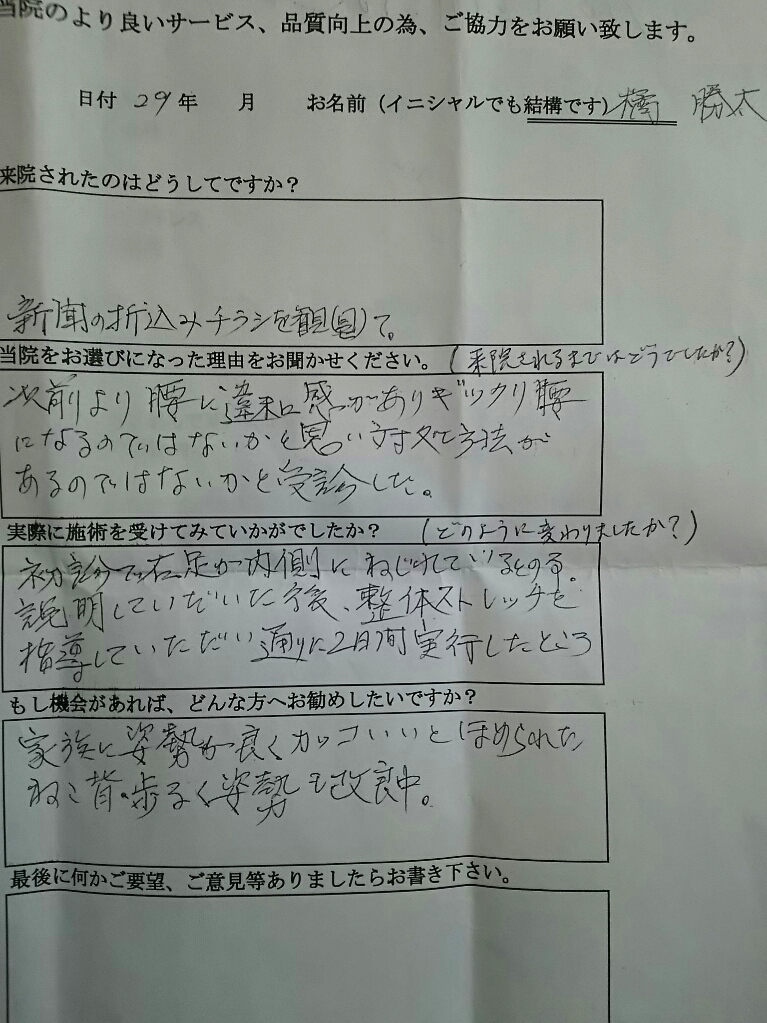 当院のより良いサービス、品質向上の為、ご協力をお願い致します。
日付 29年 月 お名前(イニシャルでも結構です) 橘 勝太
来院されたのはどうしてですか?
新聞の折込みチラシを観(見)て。
当院をお選びになった理由をお聞かせください。(来院されるまではどうでしたか?)
以前より腰に違和感がありギックリ腰
になるのではないかと思い対処方法が
あるのではないかと受診した。
実際に施術を受けてみていかがでしたか? (どのように変わりましたか?)
初診で右足が内側にねじれているとの事。
説明していただいた後、整体ストレッチを
指導していただい通りに2日間実行したところ
もし機会があれば、どんな方へお勧めしたいですか?
家族に姿勢が良くカッコいいとほめられた
ねこ背・歩るく姿勢も改良中。
最後に何かご要望、ご意見等ありましたらお書き下さい。